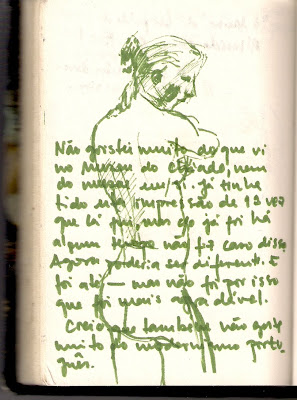 Não gostei muito do que vi
no Museu do Chiado, nem
do museu em si. Já tinha
tido essa impressão de 1ª vez
que lá fui mas do já foi há
algum tempo não fiz caso disso.
Agora poderia ser diferente. E
foi até — mas não foi por isso
que foi mais agradável.
Creio que também não gosto
muito do modernismo portu
guês.